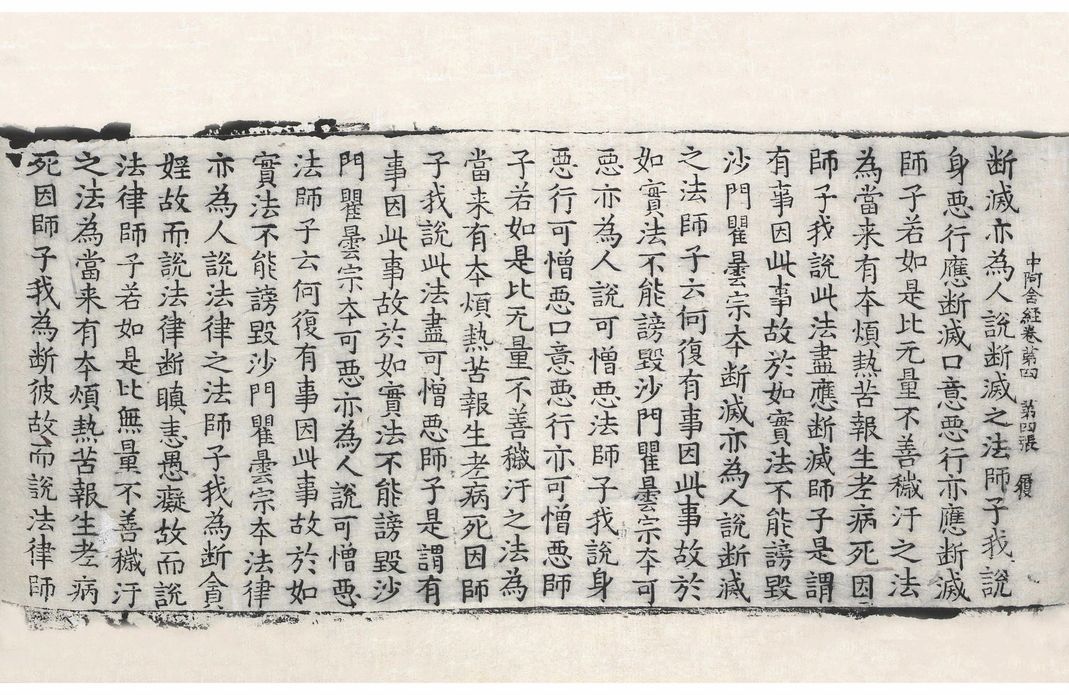 中阿含經卷第四 第四張 履
断滅亦為人說断滅之法師子我說
身惡行應断滅口意惡行亦應断滅
師子若如是比无量不善穢汙之法
為當来有夲煩熱苦報生老病死因
師子我說此法盡應断滅師子是謂
有事因此事故於如實法不能謗毀
沙門瞿曇宗夲断滅亦為人說断滅
之法師子云何復有事因此事故於
如實法不能謗毀沙門瞿曇宗夲可
惡亦為人說可憎惡法師子我說身
惡行可憎惡口意惡行亦可憎惡師
子若如是比无量不善穢汙之法為
當来有夲煩熱苦報生老病死因師
子我說此法盡可憎惡師子是謂有
事因此事故於如實法不能謗毀沙
門瞿曇宗夲可惡亦為人說可憎惡
法師子云何復有事因此事故於如
實法不能謗毀沙門瞿曇宗夲法律
亦為人說法律之法師子我為断貪
婬故而說法律断瞋恚愚癡故而說
法律師子若如是比無量不善穢汙
之法為當来有夲煩熱苦報生老病
死因師子我為断彼故而說法律師